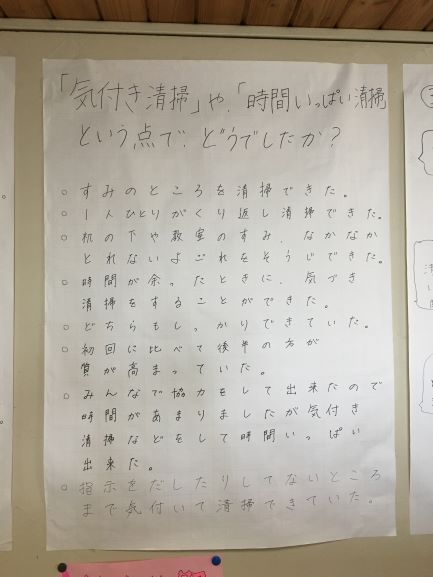 「気付き清掃」や、「時間いっぱい清掃
という点で、どうでしたか？
○ すみのところを清掃できた。
○ 1人ひとりがくり返し清掃できた。
○ 机の下や教室のすみ、なかなか
とれないよごれをそうじできた。
○ 時間が余ったときに、気づき
清掃をすることができた。
○ どちらもしっかりできていた。
○ 初回に比べて後半の方が
質が高まっていた。
○ みんなで協力をして出来たので
時間があまりましたが気付き
清掃などをして時間いっぱい
出来た。
○ 指示をだしたりしてないところ
まで気付いて清掃できていた。